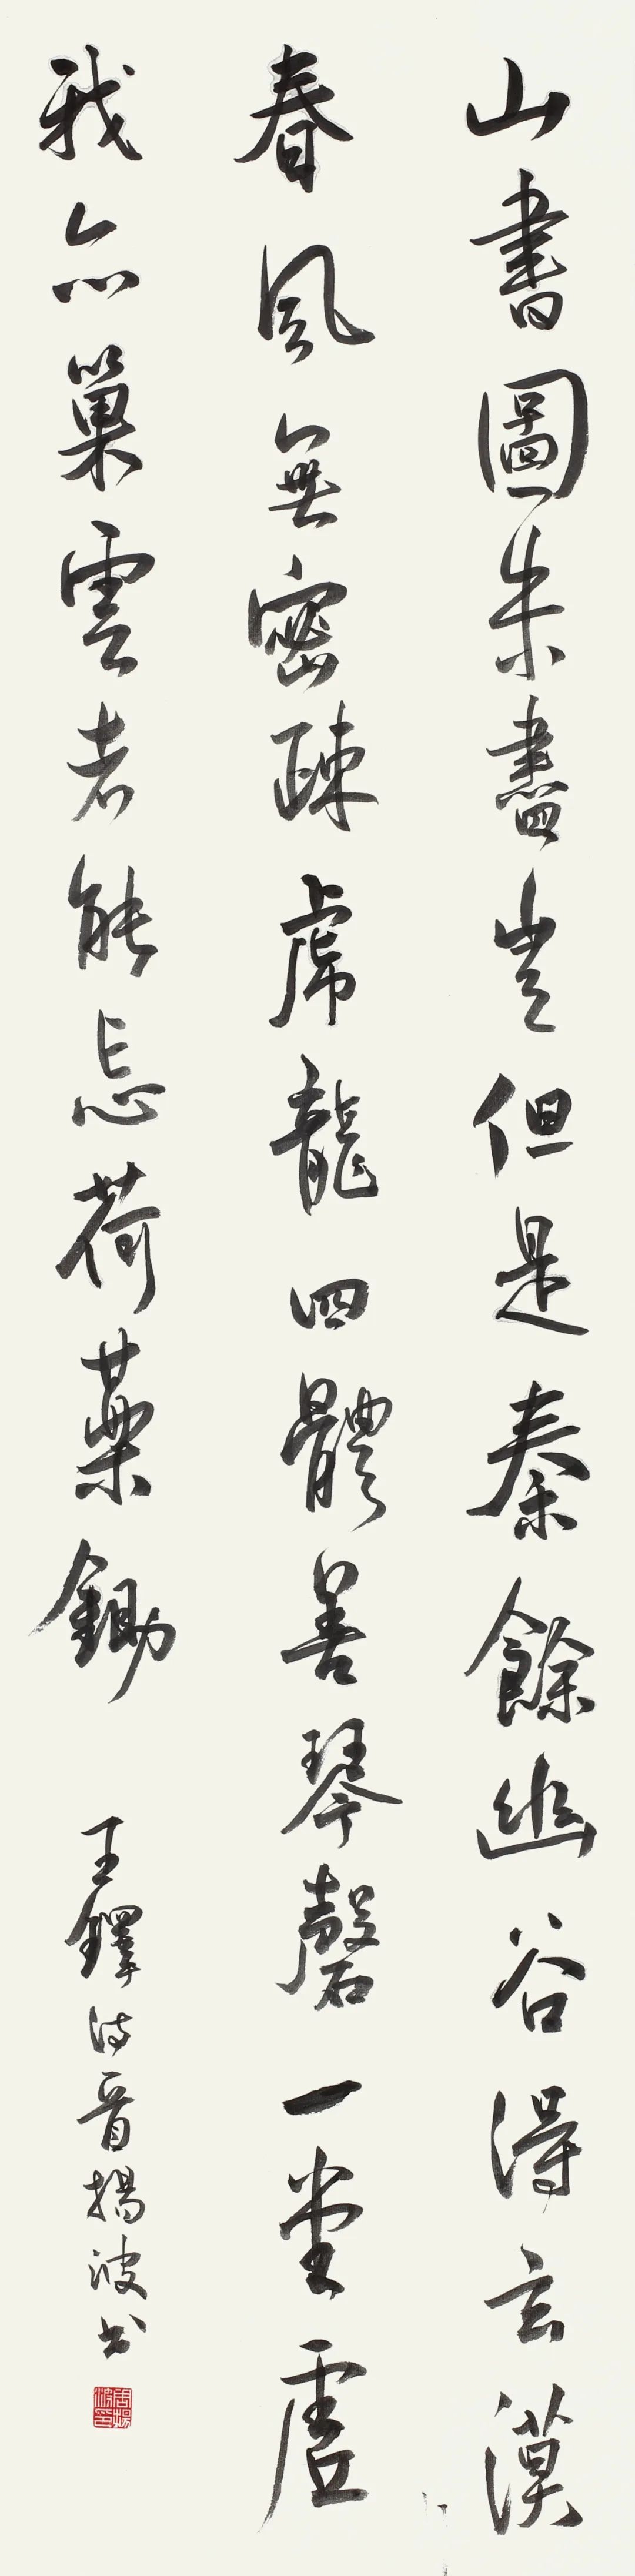 山書圖未盡豈但是秦餘幽谷得玄漠
春風無密疎虎龍四體善琴磬一堂虛
我亦巢雲者能忘荷藥鋤
王鐸詩晉揚波書
周揚波印